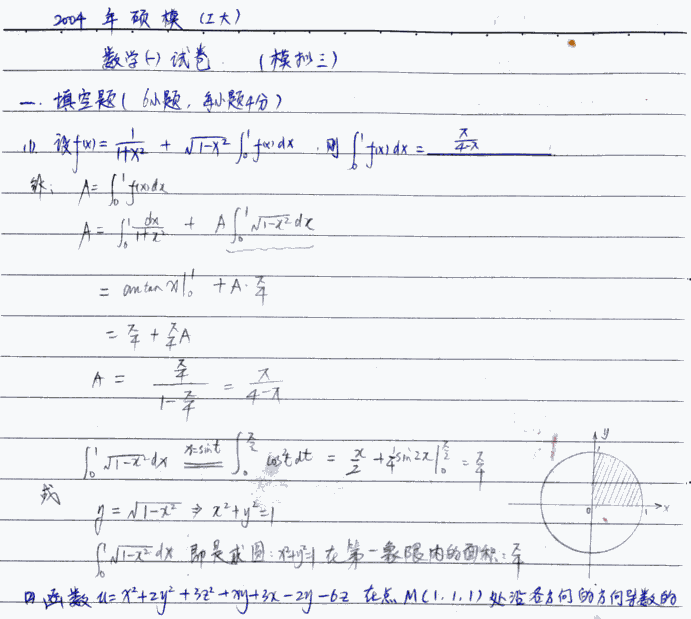 2004 年硕模 (工大)
数学(一) 试卷 (模拟三)
一. 填空题 ( 6小题, 每小题4分 )
(1) 设f(x)= 1/(1+x²) + √(1-x²) ∫₀¹ f(x)dx . 则 ∫₀¹ f(x)dx = π/(4-π)
解: A = ∫₀¹ f(x)dx
A = ∫₀¹ dx/(1+x²) + A∫₀¹ √(1-x²) dx
= arctan x|₀¹ + A·π/4
= π/4 + π/4 A
A = (π/4)/(1-π/4) = π/(4-π)
∫₀¹ √(1-x²) dx x=sint ∫₀^(π/2) cos²t dt = x/2 + 1/4 sin2x|₀^(π/2) = π/4
或
y = √(1-x²) ⇒ x²+y²=1
∫₀¹ √(1-x²) dx 即是求圆: x²+y²=1 在第一象限内的面积: π/4
y
1
0 1 x
函数 u= x²+2y²+3z²+xy+3x-2y-6z 在点 M(1,1,1) 处沿各方向的方向导数的